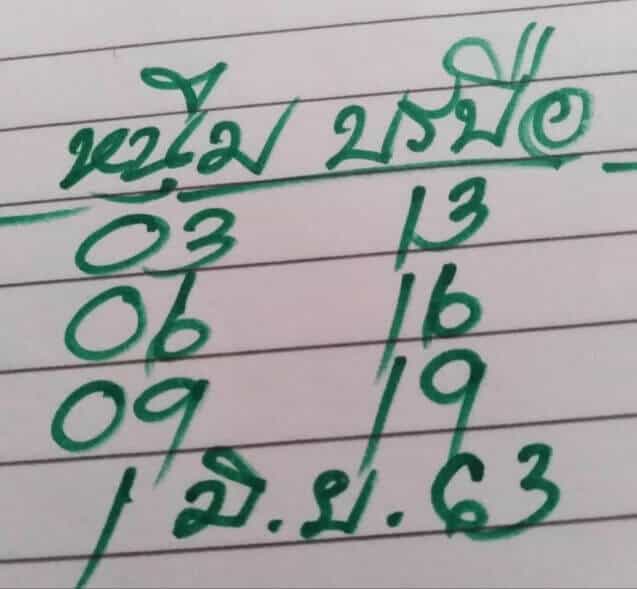 หนุ่ม บรบือ
03 13
06 16
09 19
1 มิ.ย. 63